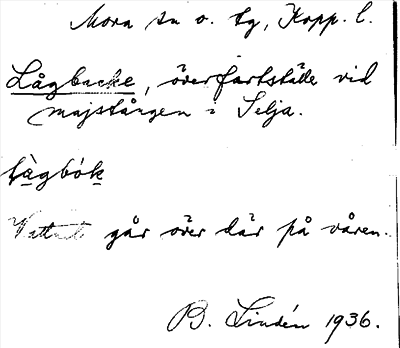 Mora sn o. tg, Kopp. l.
Lågbacke, överfartställe vid
majstången i Selja.
lågbok
Vattnet går över där på våren.
B. Lindén 1936.